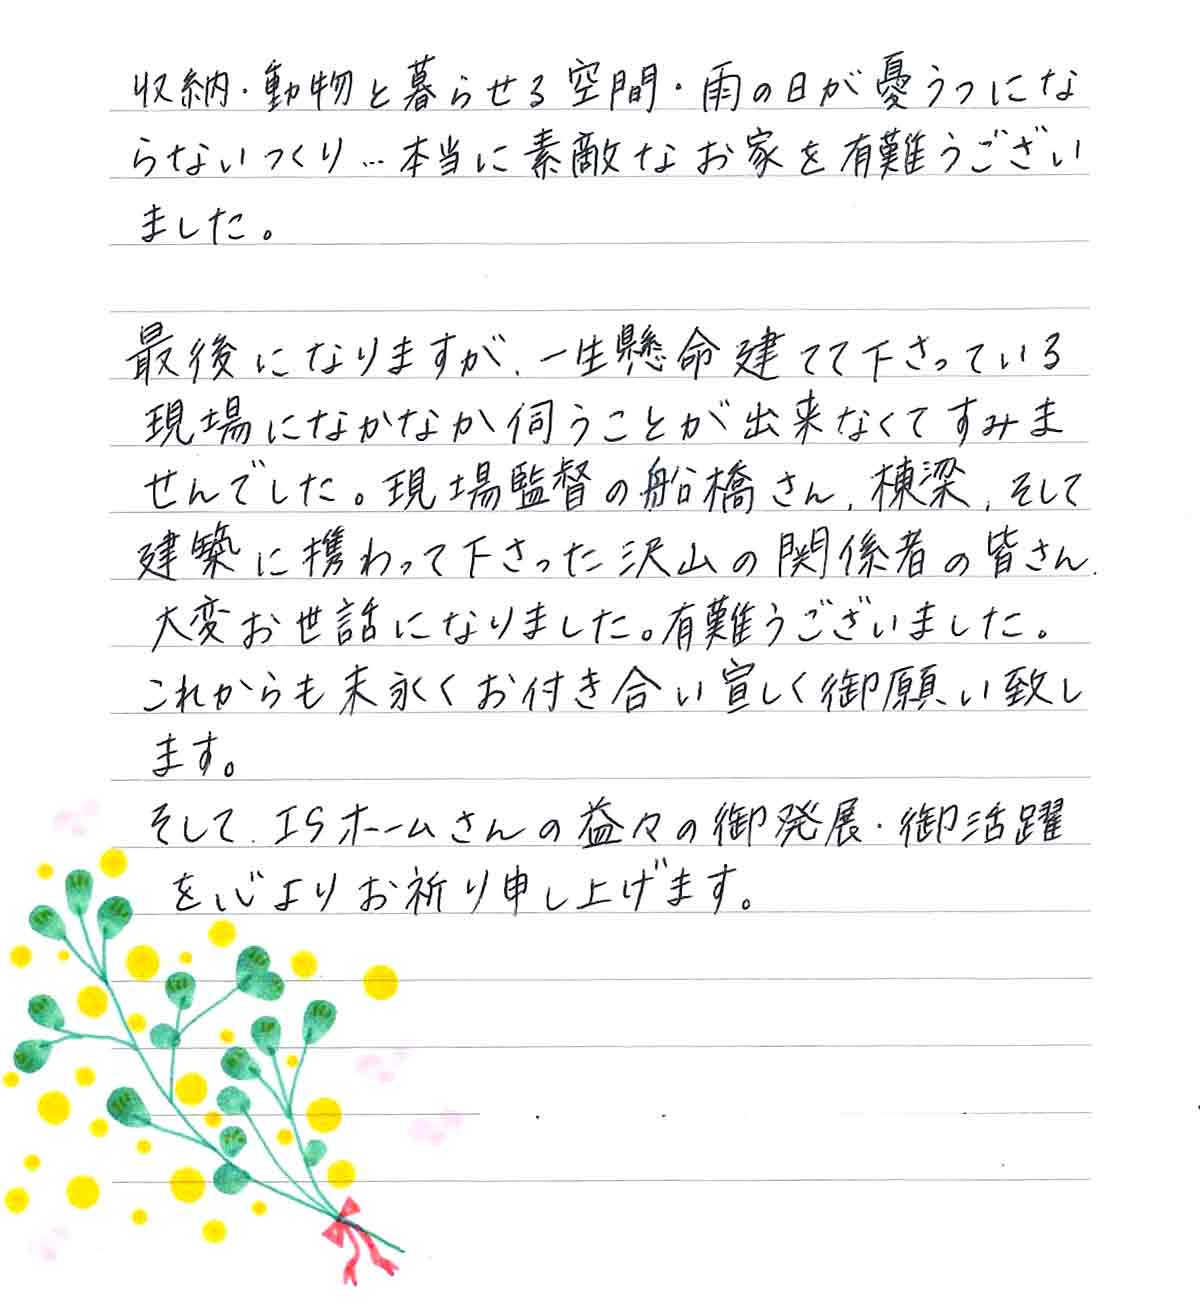 収納・動物と暮らせる空間・雨の日が憂うつにな
らないつくり…本当に素敵なお家を有難うござい
ました。
最後になりますが、一生懸命建てて下さっている
現場になかなか伺うことが出来なくてすみま
せんでした。現場監督の船橋さん、棟梁、そして
建築に携わって下さった沢山の関係者の皆さん、
大変お世話になりました。有難うございました。
これからも末永くお付き合い宜しく御願い致し
ます。
そして、ISホームさんの益々の御発展・御活躍
を心よりお祈り申し上げます。